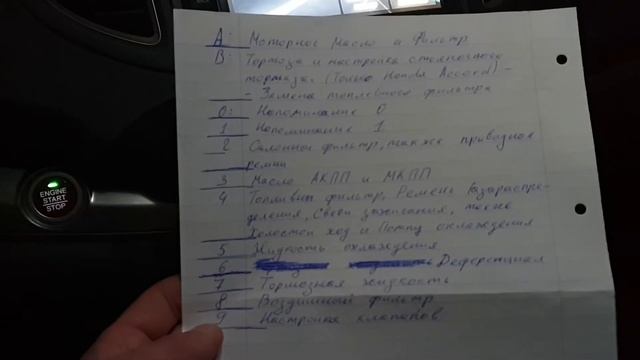 A: Моторное Масло и Фильтр
B: Тормоза и настройка стояночного
тормоза. (Только Honda Accord) -
- Замена топлевного фильтра
0: Напоминание 0
1 Напоминание 1
2 Салонный фильтр, также приводной
ремни
3 Масло АКПП и МКПП
4 Топливн фильтр, Ремень газораспре-
деления, Свечи зажигания, также
Холостой ход и Помпу охлаждения
5 Жидкость охлаждения
6 Деференциал
7 Тормозная жидкость
8 Воздушный фильтр
9 Настройка клапанов
ENGINE
START
STOP